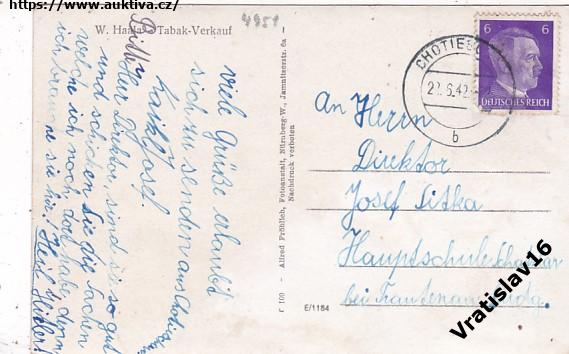 https://www.auktiva.cz/
W. Haala Tabak-Verkauf
4951
Viel Grüße erlaubt
sich zu senden aus
Karl Josef.
Bitte
Herr Direktor, sind Sie so gut
und schicken Sie die Sachen
welche ich noch dort habe, denn
ich brauche sie hier. Heil Hitler!
F 100 - Alfred Fröhlich, Fotoanstalt, Nürnberg-W., Jamnitzerstr. 6a -
Nachdruck verboten
E/1184
CHOTIESCHAU
22.6.42
b
6 6
DEUTSCHES REICH
An Herrn
Direktor
Josef Sitka
Hauptschule
bei Trautenau
Vratislav16